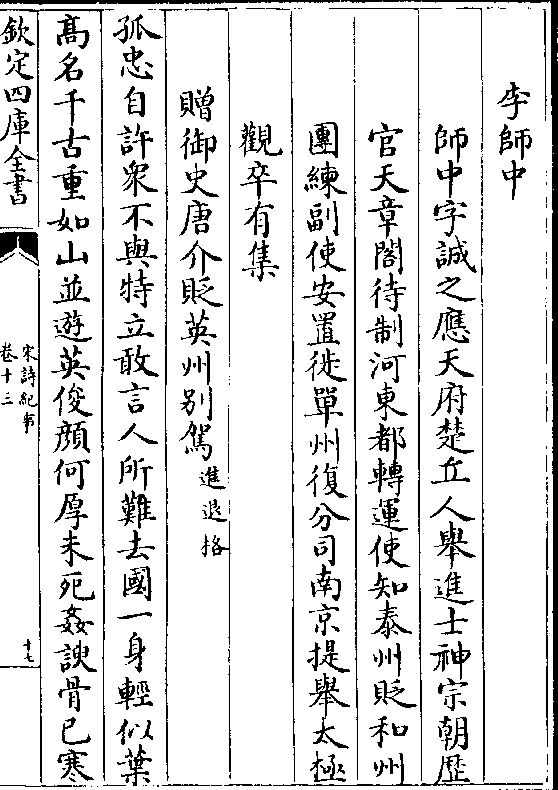 李師中
師中字誠之應天府楚丘人舉進士神宗朝歴
官天章閣待制河東都轉運使知泰州貶和州
團練副使安置徙單州復分司南京提舉太極
觀卒有集
贈御史唐介貶英州别駕進退格
孤忠自許衆不與特立敢言人所難去國一身輕似葉
髙名千古重如山並遊英俊顔何厚未死姦諛骨已寒
欽定四庫全書
宋詩紀事
卷十三
十七